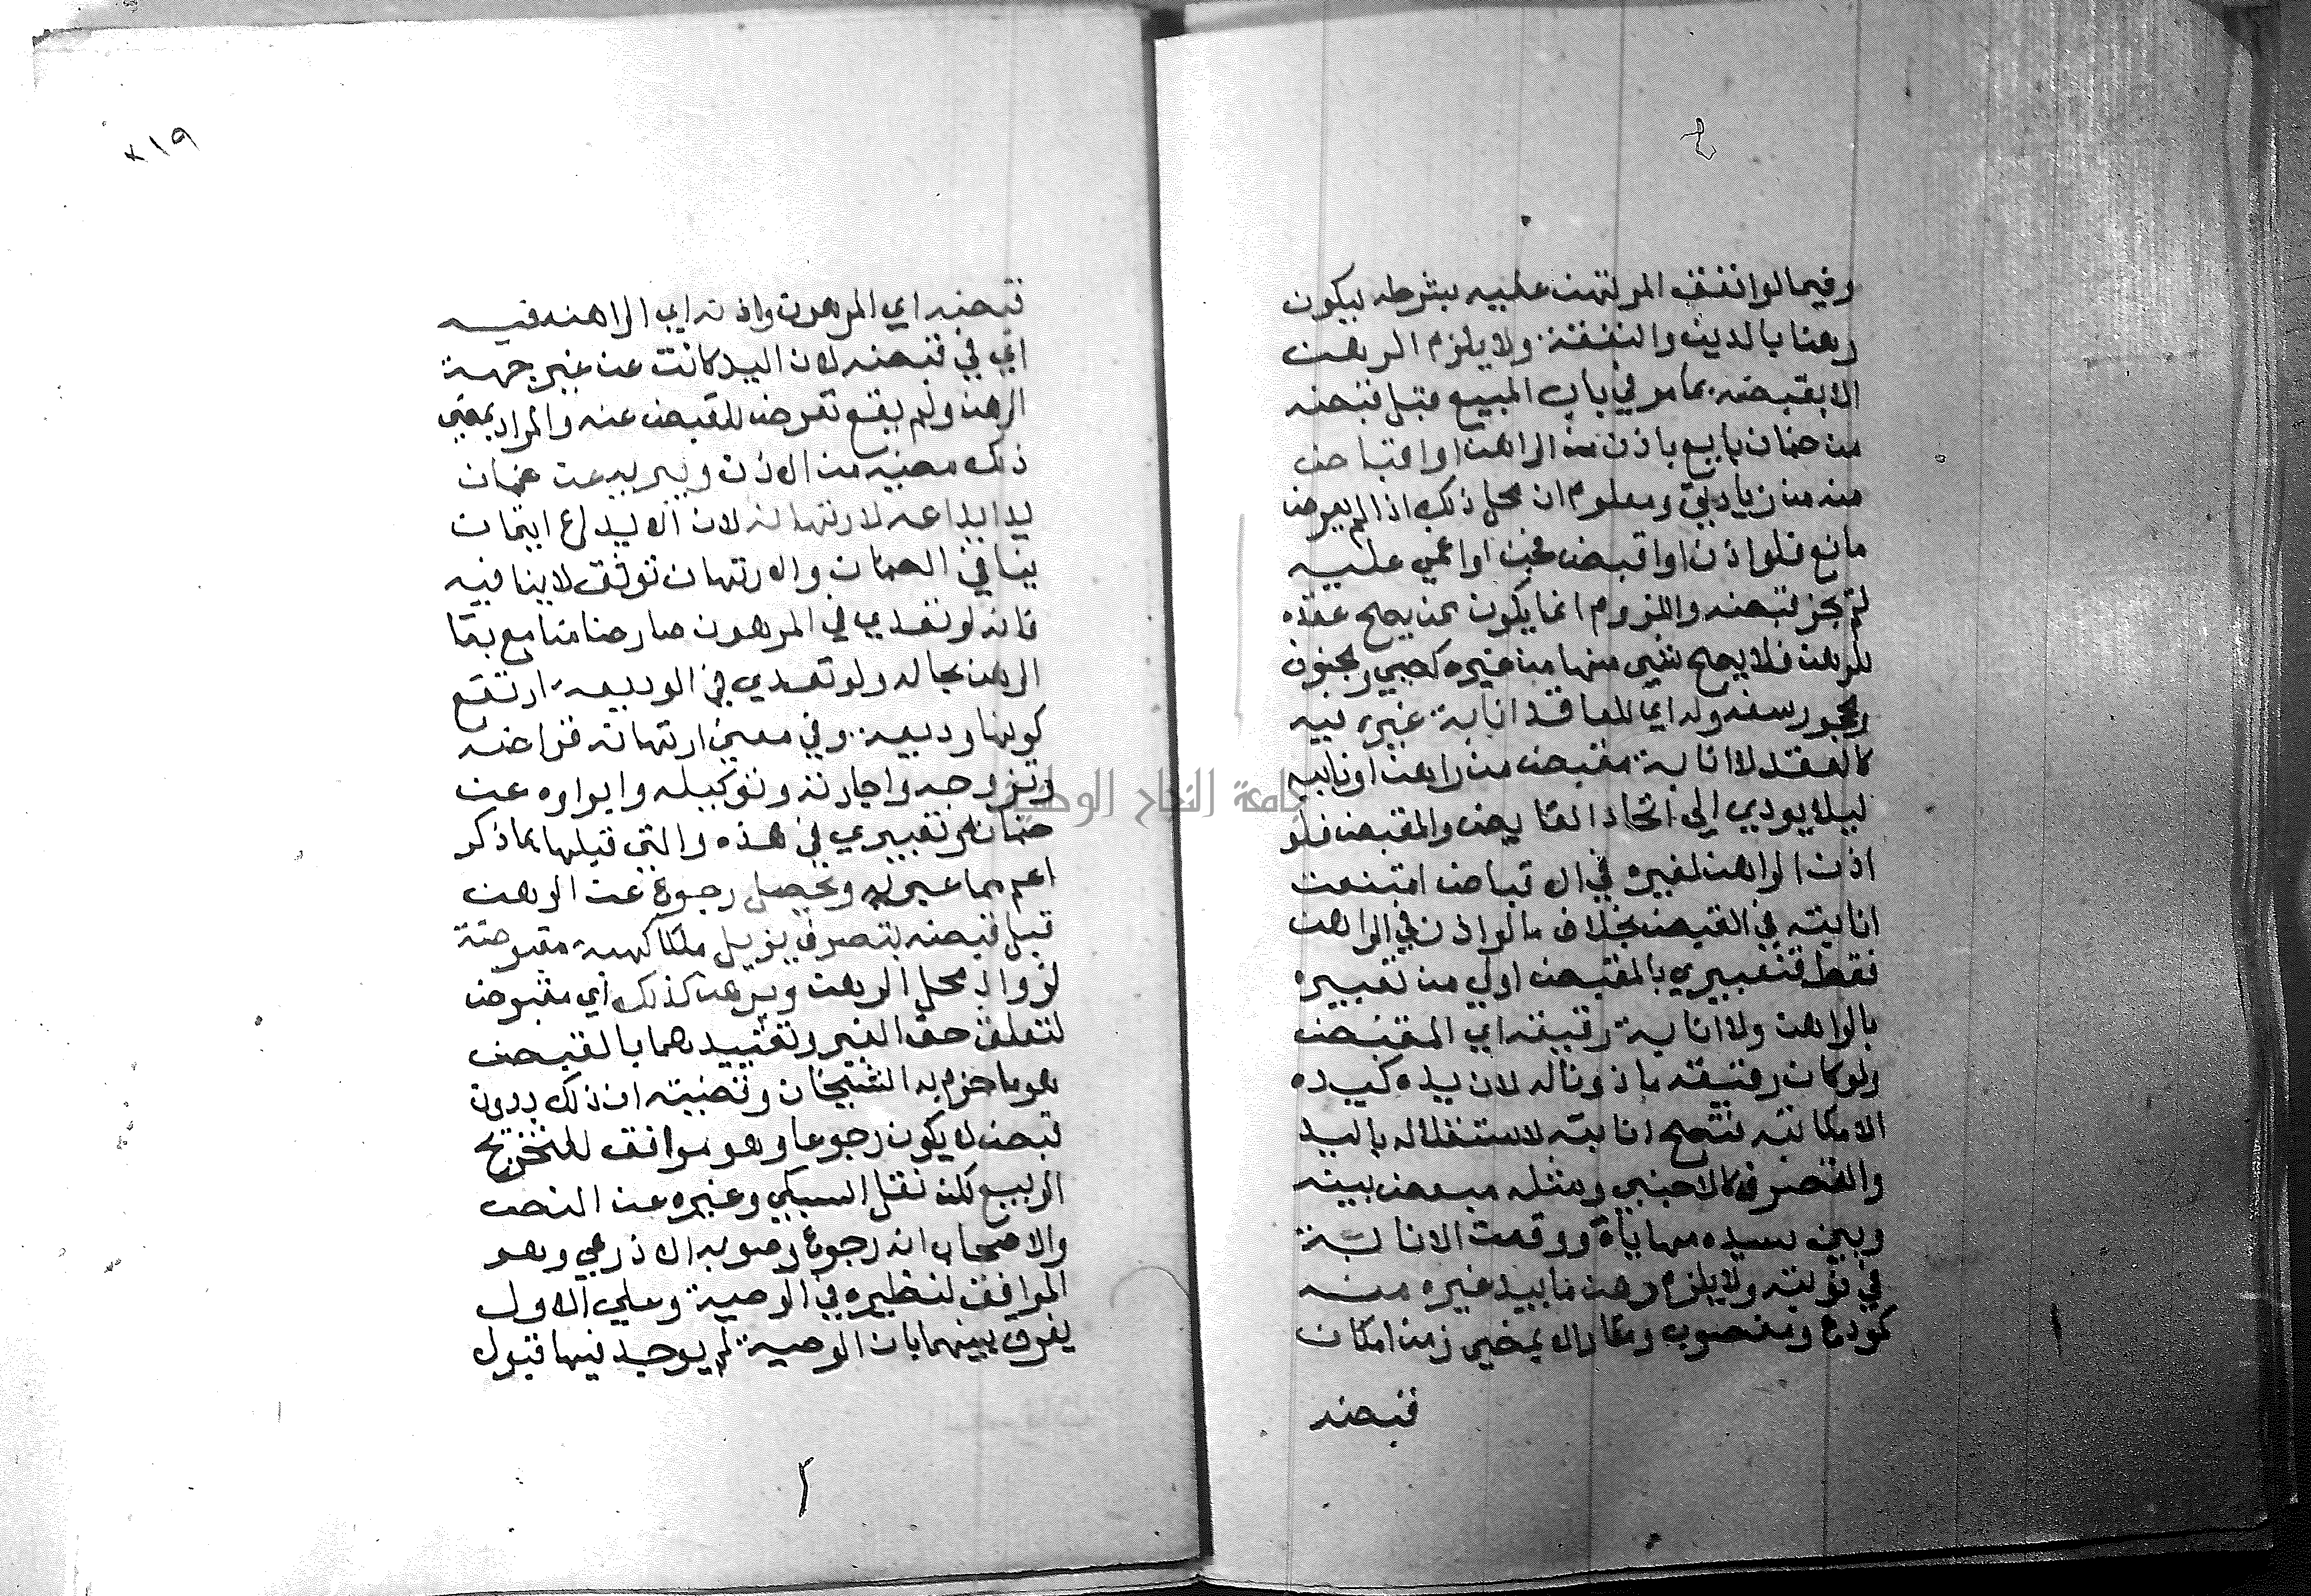 وفيما لو انفق المرتهن عليه بشرطه ليكون
رهنا بالدين والنفقة ولا يلزم الرهن
الا بقبضه بما مر في باب المبيع قبل قبضه
من ضمان بايع باذن من الراهن او اقباض
منه ومعلوم ان محل ذلك اذا لم يعرض
مانع فلو اذن او اقبض فجن او اغمي عليه
لم يجز قبضه واللزوم انما يكون ممن يصح عقده
للرهن فلا يصح شي منها من غيره كصبي ومجنون
ومحجور سفه وله اي للعاقد انابة غيره فيه
كالعقد لا انابة مقبض من راهن او نايبه
ليلا يودي الى اتحاد القابض والمقبض فلو
اذن الراهن لغيره في الاقباض امتنعت
انابته في القبض بخلاف ما لو اذن في الراهن
فقط فتعبيري بالمقبض اولي من تعبيره
بالراهن ولا انابة رقيقه اي المقبض
ولو كان رقيقه ماذونا له لان يده كيده
الا مكاتبه فتصح انابته لاستقلاله باليد
والتصرف كالاجنبي ومثله مبعض بينه
وبين سيده مهاياة ووقعت الانابة
في نوبته ولا يلزم رهن ما بيد غيره منه
كودع ومغصوب ومعار الا بمضي زمن امكان
قبضه
٢١٩
قبضه اي المرهون واذنه اي الراهن فيه
اي في قبضه لان اليد كانت عن غير جهة
الرهن ولم يقع تعرض للقبض عنه والمراد بمضي
ذلك مضيه من الاذن ويبريه عن ضمان
يد ايداعه لا ارتهانه لان الايداع ايتمان
ينافي الضمان والارتهان توثق لا ينافيه
فانه لو تعدي في المرهون صار ضامنا مع بقا
الرهن بحاله ولو تعدي في الوديعة ارتفع
كونها وديعة وفي معني ارتهانه قراضه
وتزويجه واجارته وتوكيله وابراوه عن
ضمانه وتعبيري في هذه والتي قبلها بما ذكر
اعم مما عبر به ويحصل رجوع عن الرهن
قبل قبضه بتصرف يزيل ملكا كهبة مقبوضة
لزوال محل الرهن وبرهن كذلك اي مقبوض
لتعلق حق الغير وتقييدهما بالقبض
هو ما جزم به الشيخان وقضيته ان ذلك بدون
قبض لا يكون رجوعا وهو موافق لتخريج
الربيع لكن نقل السبكي وغيره عن النص
والاصحاب انه رجوع وصوبه الاذرعي وهو
الموافق لنظيره في الوصية وعلي الاول
يفرق بينهما بان الوصية لم يوجد فيها قبول
جامعة النجاح الوطنية